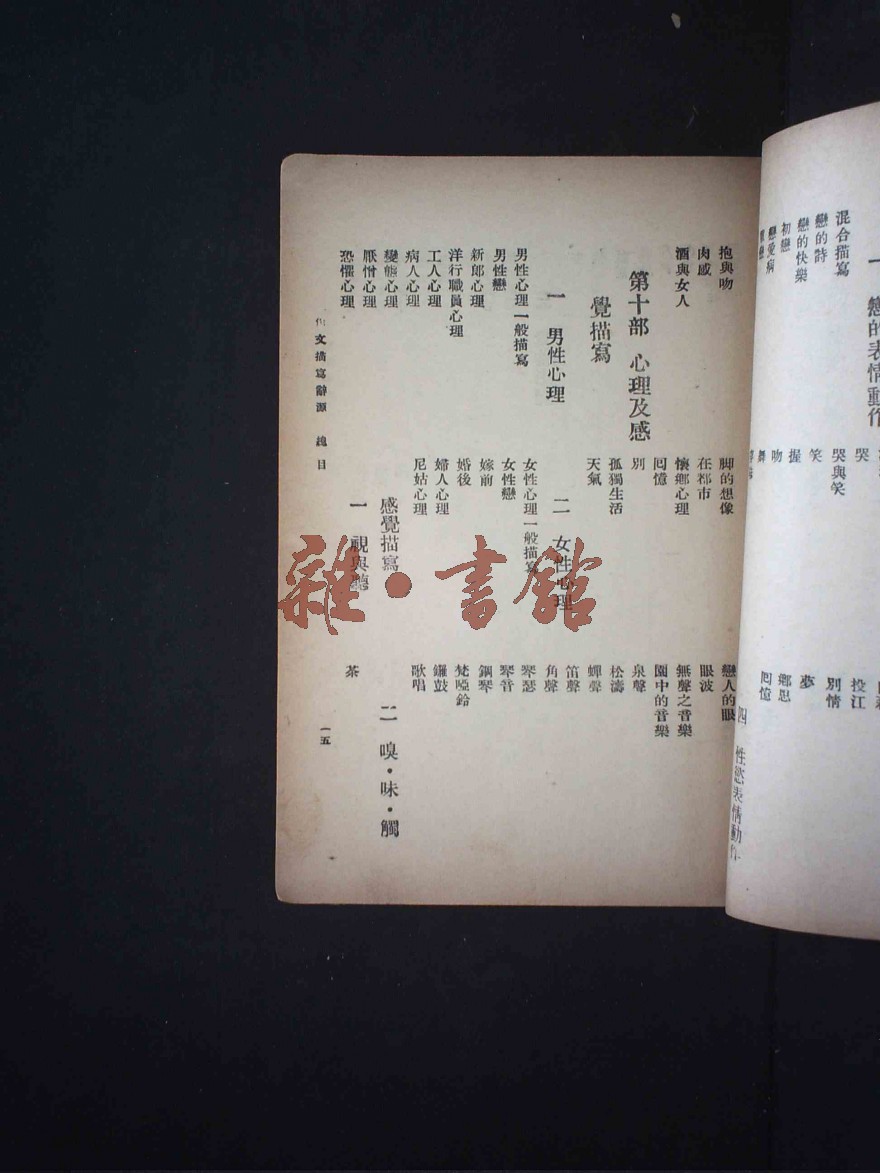 混合描寫
戀的詩
戀的快樂
初戀
戀愛病
一 戀的表情動作
哭
哭與笑
笑
握
吻
舞
投江
別情
夢
鄉思
回憶
四 性慾表情動作
抱與吻
肉感
酒與女人
第十部 心理及感
覺描寫
一 男性心理
男性心理一般描寫
男性戀
新郎心理
洋行職員心理
工人心理
病人心理
變態心理
厭憎心理
恐懼心理
脚的想像
在都市
懷鄉心理
回憶
別
孤獨生活
天氣
二 女性心理
女性心理一般描寫
女性戀
嫁前
婚後
婦人心理
尼姑心理
感覺描寫
一 視與聽
戀人的眼
眼波
無聲之音樂
園中的音樂
泉聲
松濤
蟬聲
笛聲
角聲
琴瑟
琴音
鋼琴
梵啞鈴
鑼鼓
歌唱
二 嗅·味·觸
茶
文描寫辭源 總目
一五
雜·書館